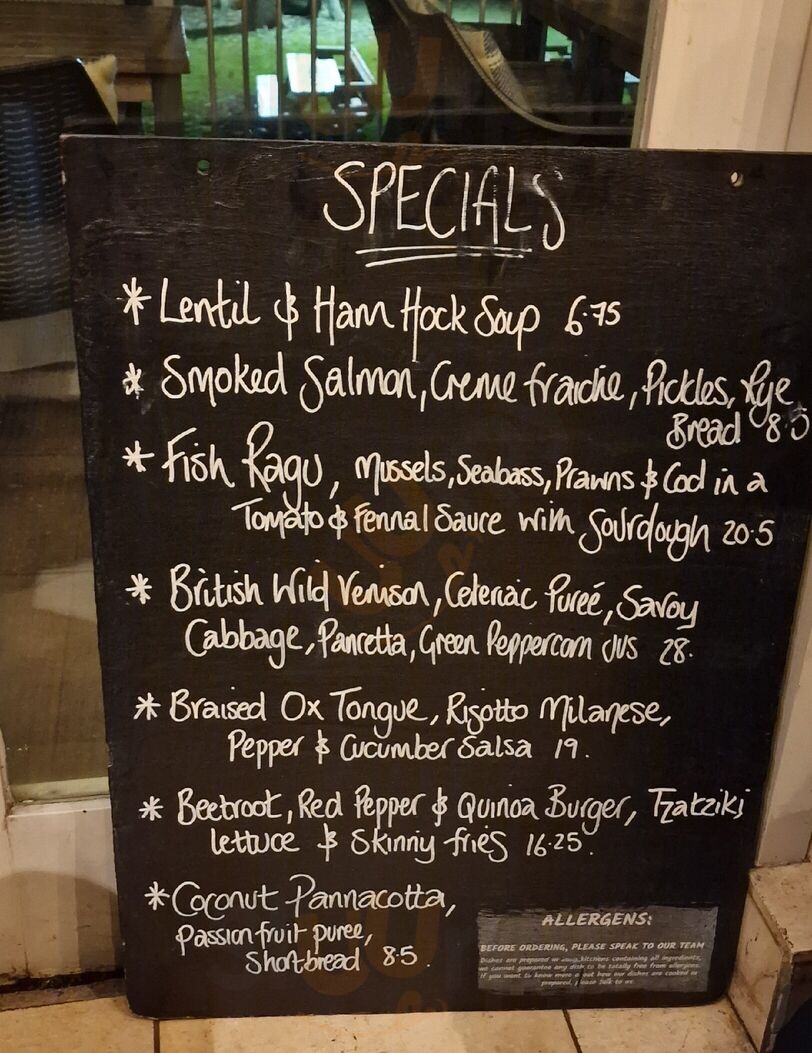 SPECIALS
* Lentil & Ham Hock Soup 6.75
* Smoked Salmon, Creme fraiche, Pickles, Rye
Bread 8.5
* Fish Ragu, Mussels, Seabass, Prawns & Cod in a
Tomato & Fennal Sauce with Sourdough 20.5
* British Wild Venison, Celeriac Pureé, Savoy
Cabbage, Pancetta, Green Peppercorn Jus 28.
* Braised Ox Tongue, Risotto Milanese,
Pepper & Cucumber Salsa 19.
* Beetroot, Red Pepper & Quinoa Burger, Tzatziki
lettuce & Skinny fries 16.25.
* Coconut Pannacotta,
Passionfruit puree,
Shortbread 8.5.
ALLERGENS:
BEFORE ORDERING, PLEASE SPEAK TO OUR TEAM
Dishes are prepared in kitchens containing all ingredients,
we cannot guarantee any dish to be totally free from allergens.
If you want to know more about how our dishes are cooked or
prepared, please talk to us.